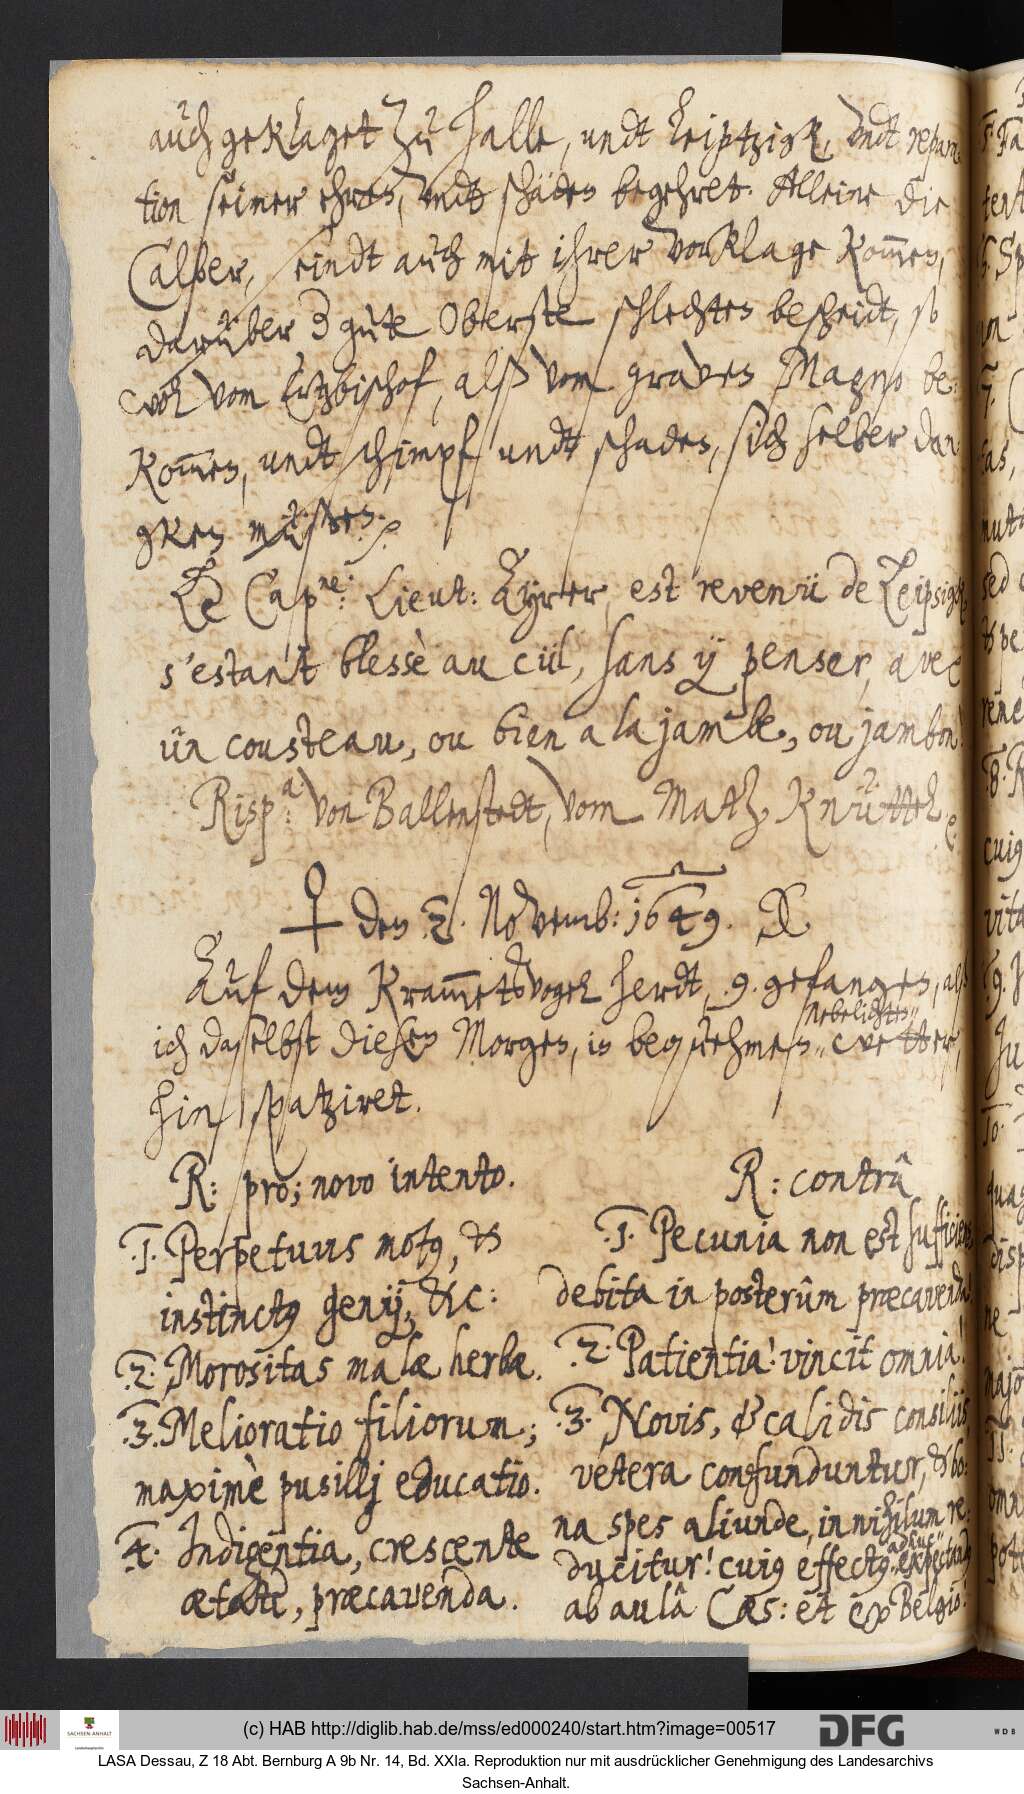 auch geklaget zu Halle, undt Leiptzigk, undt repara-
tion seiner ehren, undt schäden begehret. Alleine die
Calber, seindt auch mit ihrer vorklage kommen,
darüber 3 gute Oberste schlechten bescheidt, so
wol vom Ertzbischof, alß vom graven Magno be-
kommen, undt schimpf undt schaden, sich selber dan-
cken müßen. p
Le Cap.ne: Lieut: Eyrer, est revenü de Leipsigk,
s'estant blessè au cül, sans ÿ penser, avec
ün cousteau, ou bien a la jambe, ou jambon!
Risp.a: von Ballenstedt, vom Matz Knüttel p.
♀ den 2. Novemb: 1649.
Auf dem Krammetsvogel herdt, 9. gefangen, alß
ich daselbst diesen Morgen, in beqwehmen„ Nebelichten„ wetter,
hin spatziret.
R: pro; novo intento.
.1. Perpetuus motus, &
instinctus genij, &c:
.2. Morositas malæ herbæ.
.3. Melioratio filiorum;
maximè pusillj educatio.
4. Indigentia, crescente
ætate, præcavenda.
R: contrâ
.1. Pecunia non est sufficiens
debita in posterûm præcavenda!
.2. Patientia! vincit omnia!
.3. Novis, & calidis consiliis,
vetera confunduntur, & bo-
na spes aliunde, in nihilum re-
ducitur! cuius effectus adhuc„ expectandus
ab aulâ Cæs: et ex Belgio!
(c) HAB http://diglib.hab.de/mss/ed000240/start.htm?image=00517
SACHSEN-ANHALT
DFG
WDB
LASA Dessau, Z 18 Abt. Bernburg A 9b Nr. 14, Bd. XXIa. Reproduktion nur mit ausdrücklicher Genehmigung des Landesarchivs
Sachsen-Anhalt.